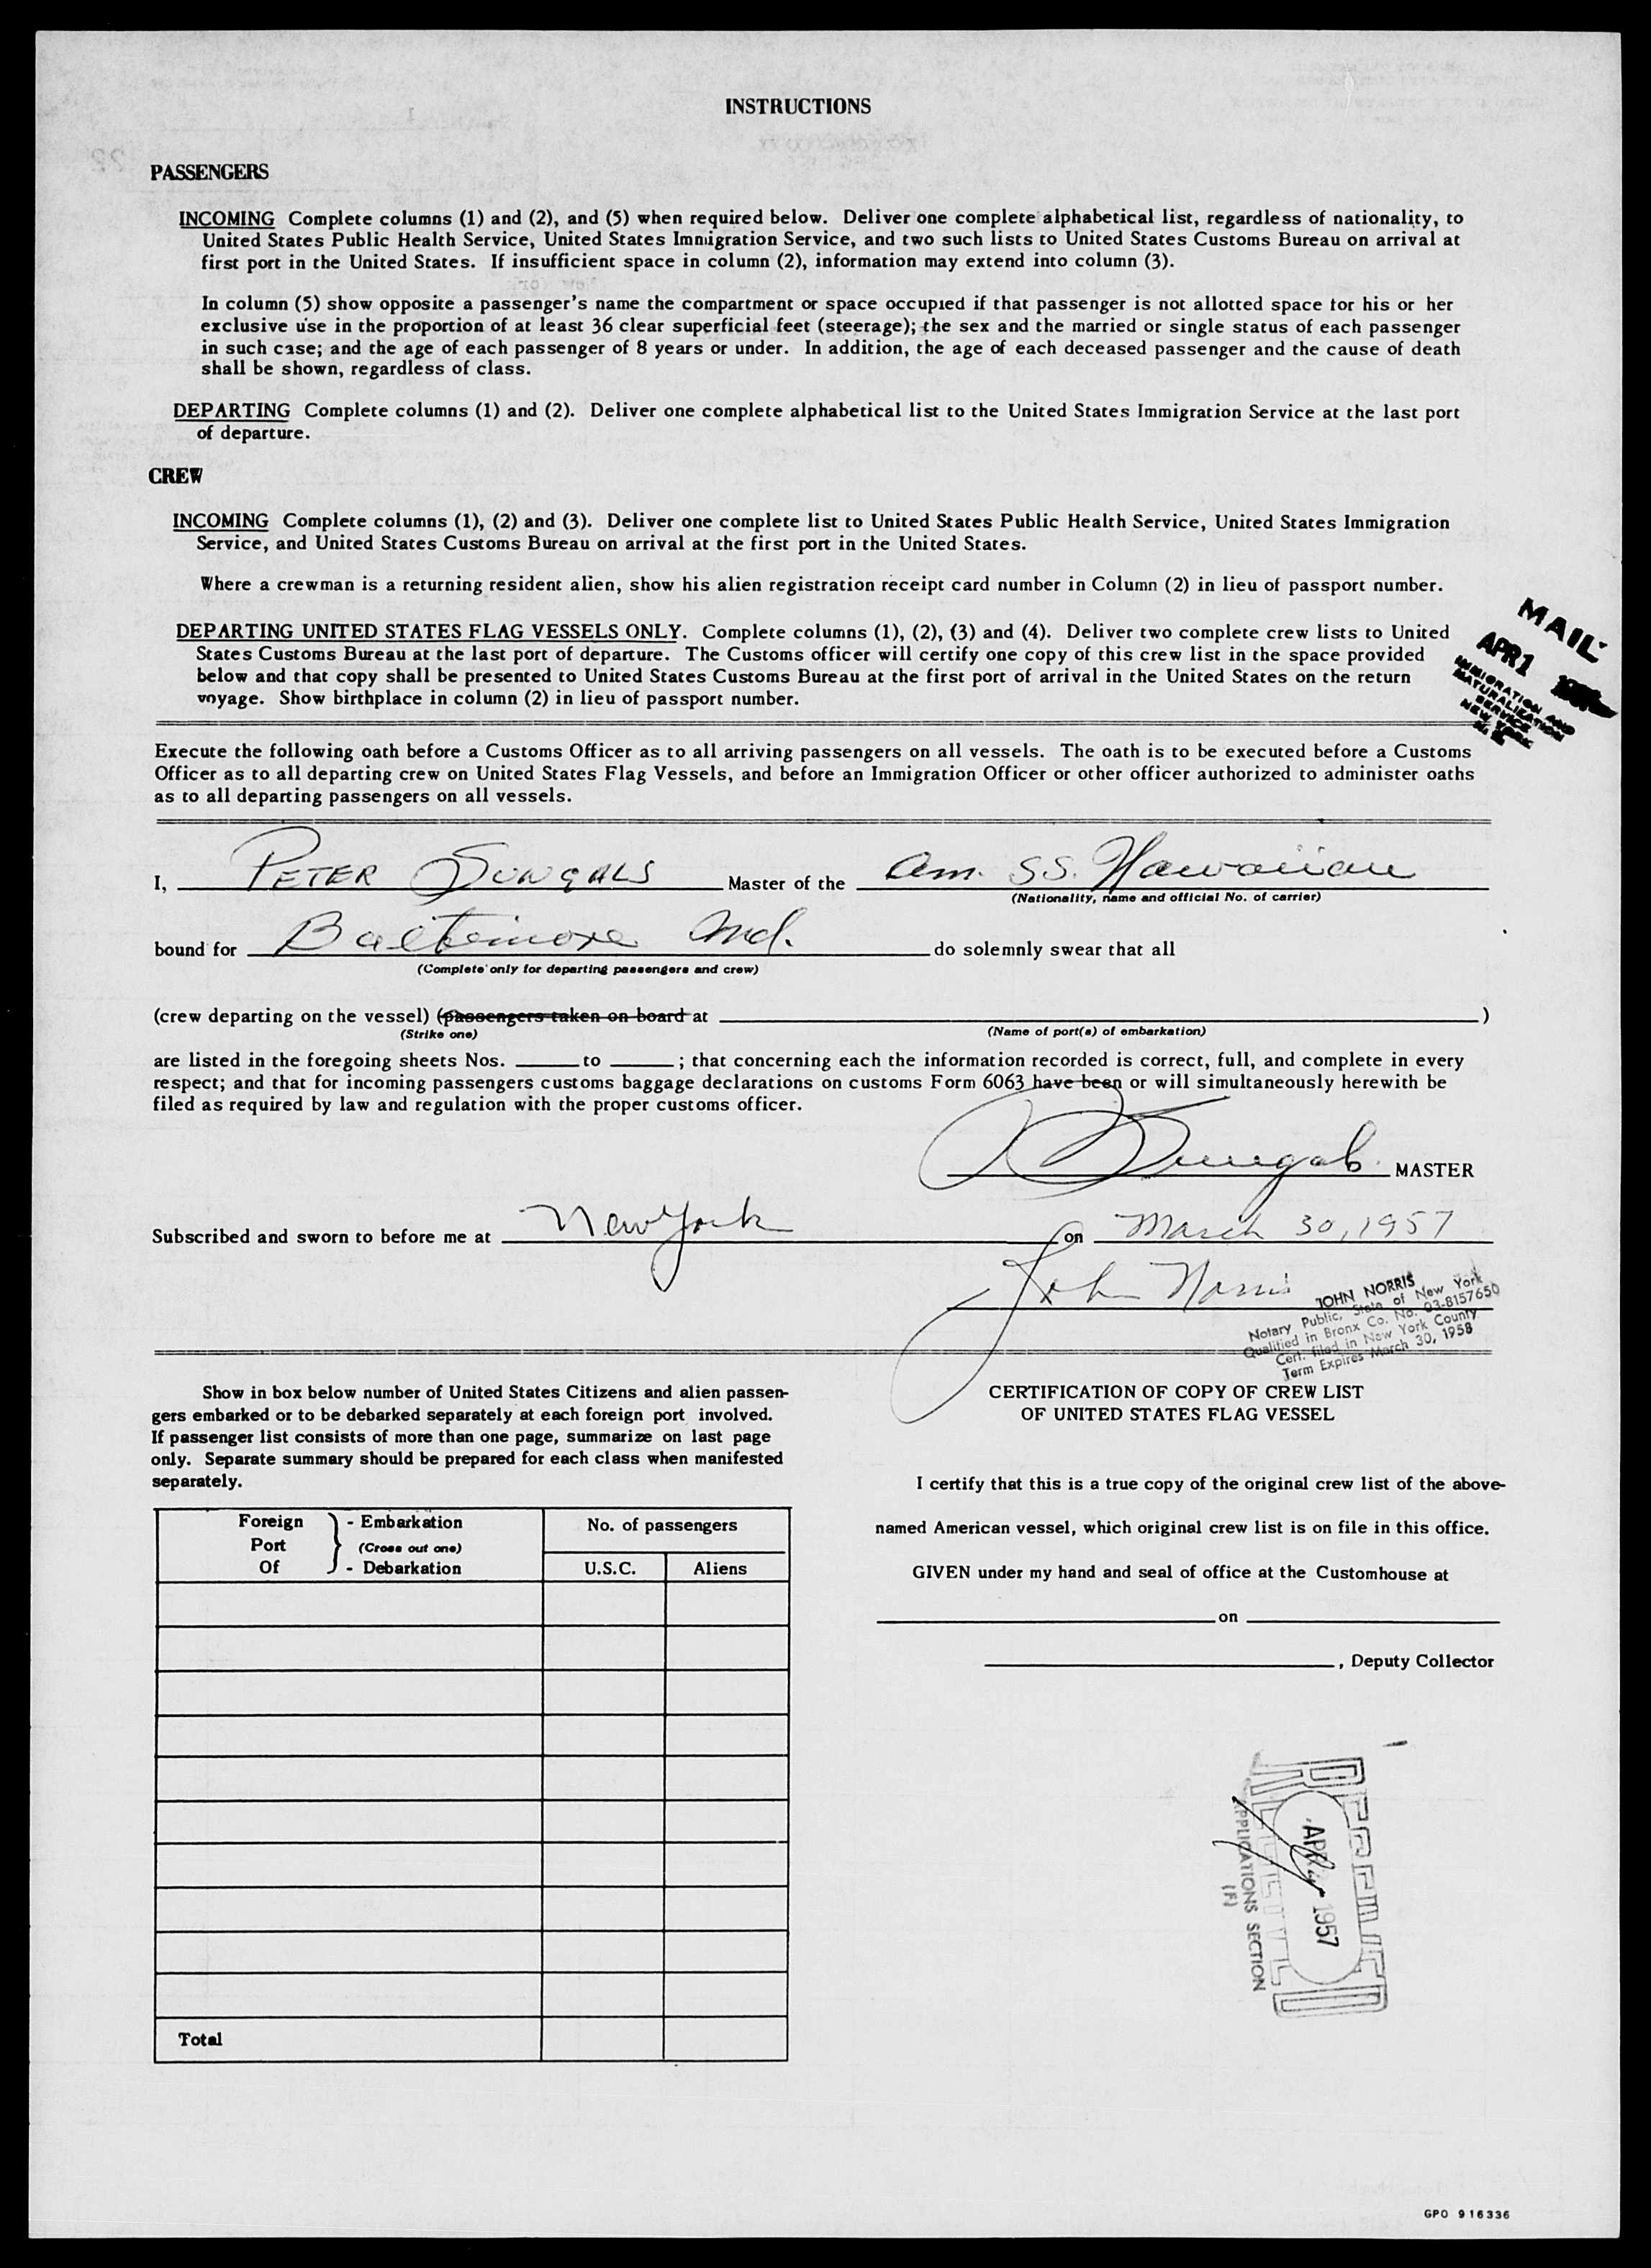 INSTRUCTIONS
PASSENGERS
INCOMING Complete columns (1) and (2), and (5) when required below. Deliver one complete alphabetical list, regardless of nationality, to
United States Public Health Service, United States Immigration Service, and two such lists to United States Customs Bureau on arrival at
first port in the United States. If insufficient space in column (2), information may extend into column (3).
In column (5) show opposite a passenger's name the compartment or space occupied if that passenger is not allotted space for his or her
exclusive use in the proportion of at least 36 clear superficial feet (steerage); the sex and the married or single status of each passenger
in such case; and the age of each passenger of 8 years or under. In addition, the age of each deceased passenger and the cause of death
shall be shown, regardless of class.
DEPARTING Complete columns (1) and (2). Deliver one complete alphabetical list to the United States Immigration Service at the last port
of departure.
CREW
INCOMING Complete columns (1), (2) and (3). Deliver one complete list to United States Public Health Service, United States Immigration
Service, and United States Customs Bureau on arrival at the first port in the United States.
Where a crewman is a returning resident alien, show his alien registration receipt card number in Column (2) in lieu of passport number.
DEPARTING UNITED STATES FLAG VESSELS ONLY. Complete columns (1), (2), (3) and (4). Deliver two complete crew lists to United
States Customs Bureau at the last port of departure. The Customs officer will certify one copy of this crew list in the space provided
below and that copy shall be presented to United States Customs Bureau at the first port of arrival in the United States on the return
voyage. Show birthplace in column (2) in lieu of passport number.
MAIL
APR 1
IMMIGRATION AND
NATURALIZATION
SERVICE
NEW YORK
N. Y.
Execute the following oath before a Customs Officer as to all arriving passengers on all vessels. The oath is to be executed before a Customs
Officer as to all departing crew on United States Flag Vessels, and before an Immigration Officer or other officer authorized to administer oaths
as to all departing passengers on all vessels.
I, PETER Master of the Am. SS. Hawaiian
(Nationality, name and official No. of carrier)
bound for Baltimore Md. do solemnly swear that all
(Complete only for departing passengers and crew)
(crew departing on the vessel) (passengers taken on board at )
(Strike one) (Name of port(s) of embarkation)
are listed in the foregoing sheets Nos. to ; that concerning each the information recorded is correct, full, and complete in every
respect; and that for incoming passengers customs baggage declarations on customs Form 6063 have been or will simultaneously herewith be
filed as required by law and regulation with the proper customs officer.
MASTER
Subscribed and sworn to before me at New York on March 30, 1957
John Norris
JOHN NORRIS
Notary Public, State of New York
Qualified in Bronx Co. No. 03-8157650
Cert. filed in New York County
Term Expires March 30, 1958
Show in box below number of United States Citizens and alien passen-
gers embarked or to be debarked separately at each foreign port involved.
If passenger list consists of more than one page, summarize on last page
only. Separate summary should be prepared for each class when manifested
separately.
Foreign Port Of } - Embarkation (Cross out one) - Debarkation
No. of passengers
U.S.C. Aliens
Total
CERTIFICATION OF COPY OF CREW LIST
OF UNITED STATES FLAG VESSEL
I certify that this is a true copy of the original crew list of the above-
named American vessel, which original crew list is on file in this office.
GIVEN under my hand and seal of office at the Customhouse at
on
, Deputy Collector
RECEIVED
APR 1957
APPLICATIONS SECTION
(F)
GPO 916336